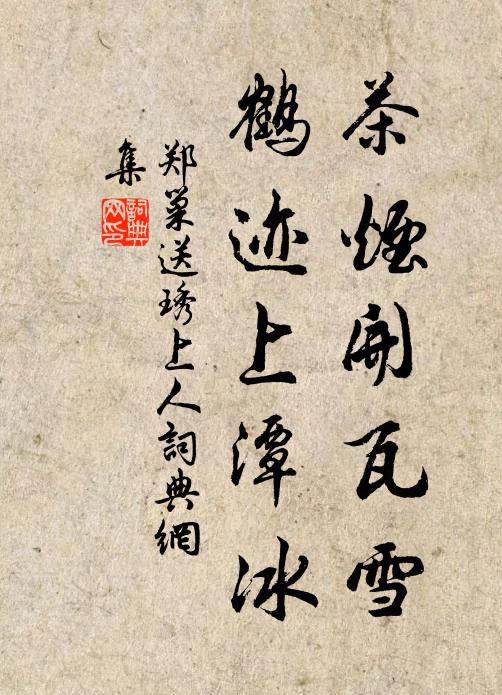 茶煙開瓦雪
鶴迹上潭冰
郑巢送琇上人詞典網
集
詞典
网印